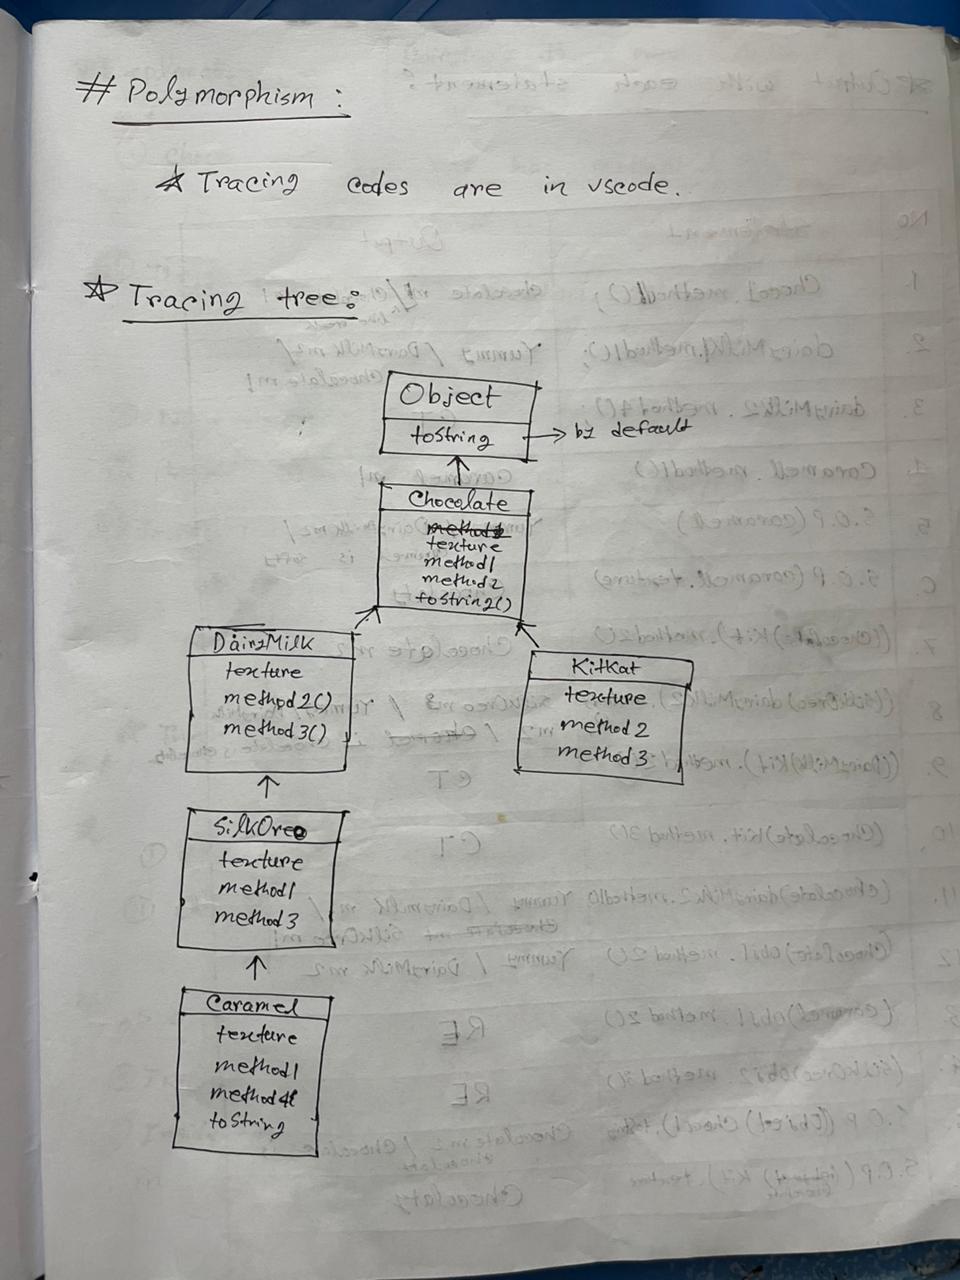 # Polymorphism :
☆ Tracing codes are in vscode.
☆ Tracing tree:
Object
toString → by default
Chocolate
texture
method1
method2
toString2()
DairyMilk
texture
method2()
method3()
KitKat
texture
method2
method3
SilkOreo
texture
method1
method3
Caramel
texture
method1
method4
toString